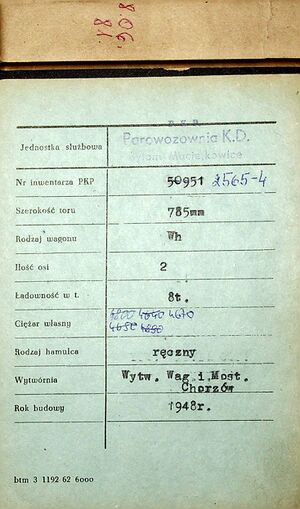 8.06.
81
P.K.P.
Parowozownia K.D.
Bytom Maciejkowice
Jednostka służbowa
Nr inwentarza PKP 50951 2565-4
Szerokość toru 785mm
Rodzaj wagonu Wh
Ilość osi 2
Ładowność w t. 8t.
4800 4640 4670
Ciężar własny 4650 4690
Rodzaj hamulca ręczny
Wytwórnia Wytw. Wag i Most.
Chorzów
Rok budowy 1948r.
btm 3 1192 62 6000